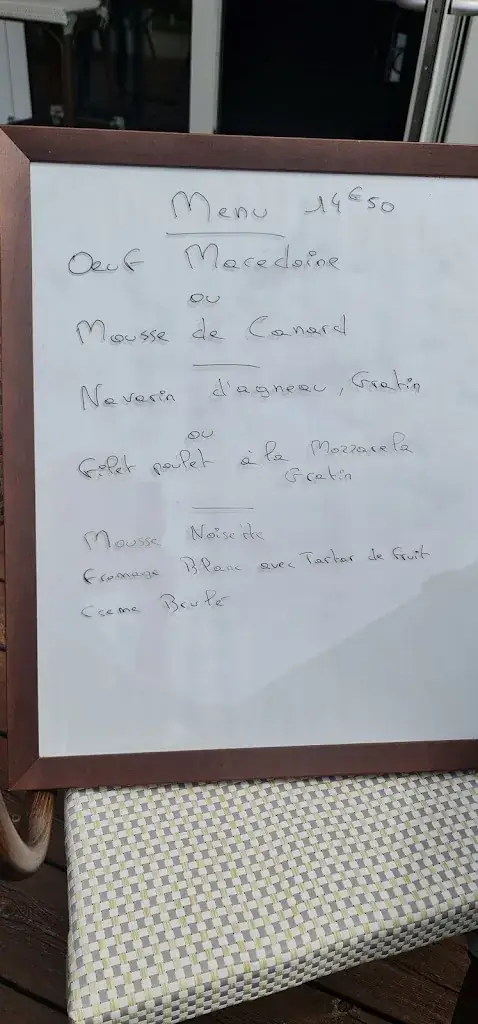 Menu 14€50
Oeuf Macedoine
ou
Mousse de Canard
Navarin d'agneau, Gratin
ou
Filet poulet à la Mozzarela
Gratin
Mousse Noisette
Fromage Blanc avec Tartar de Fruit
Creme Brulé